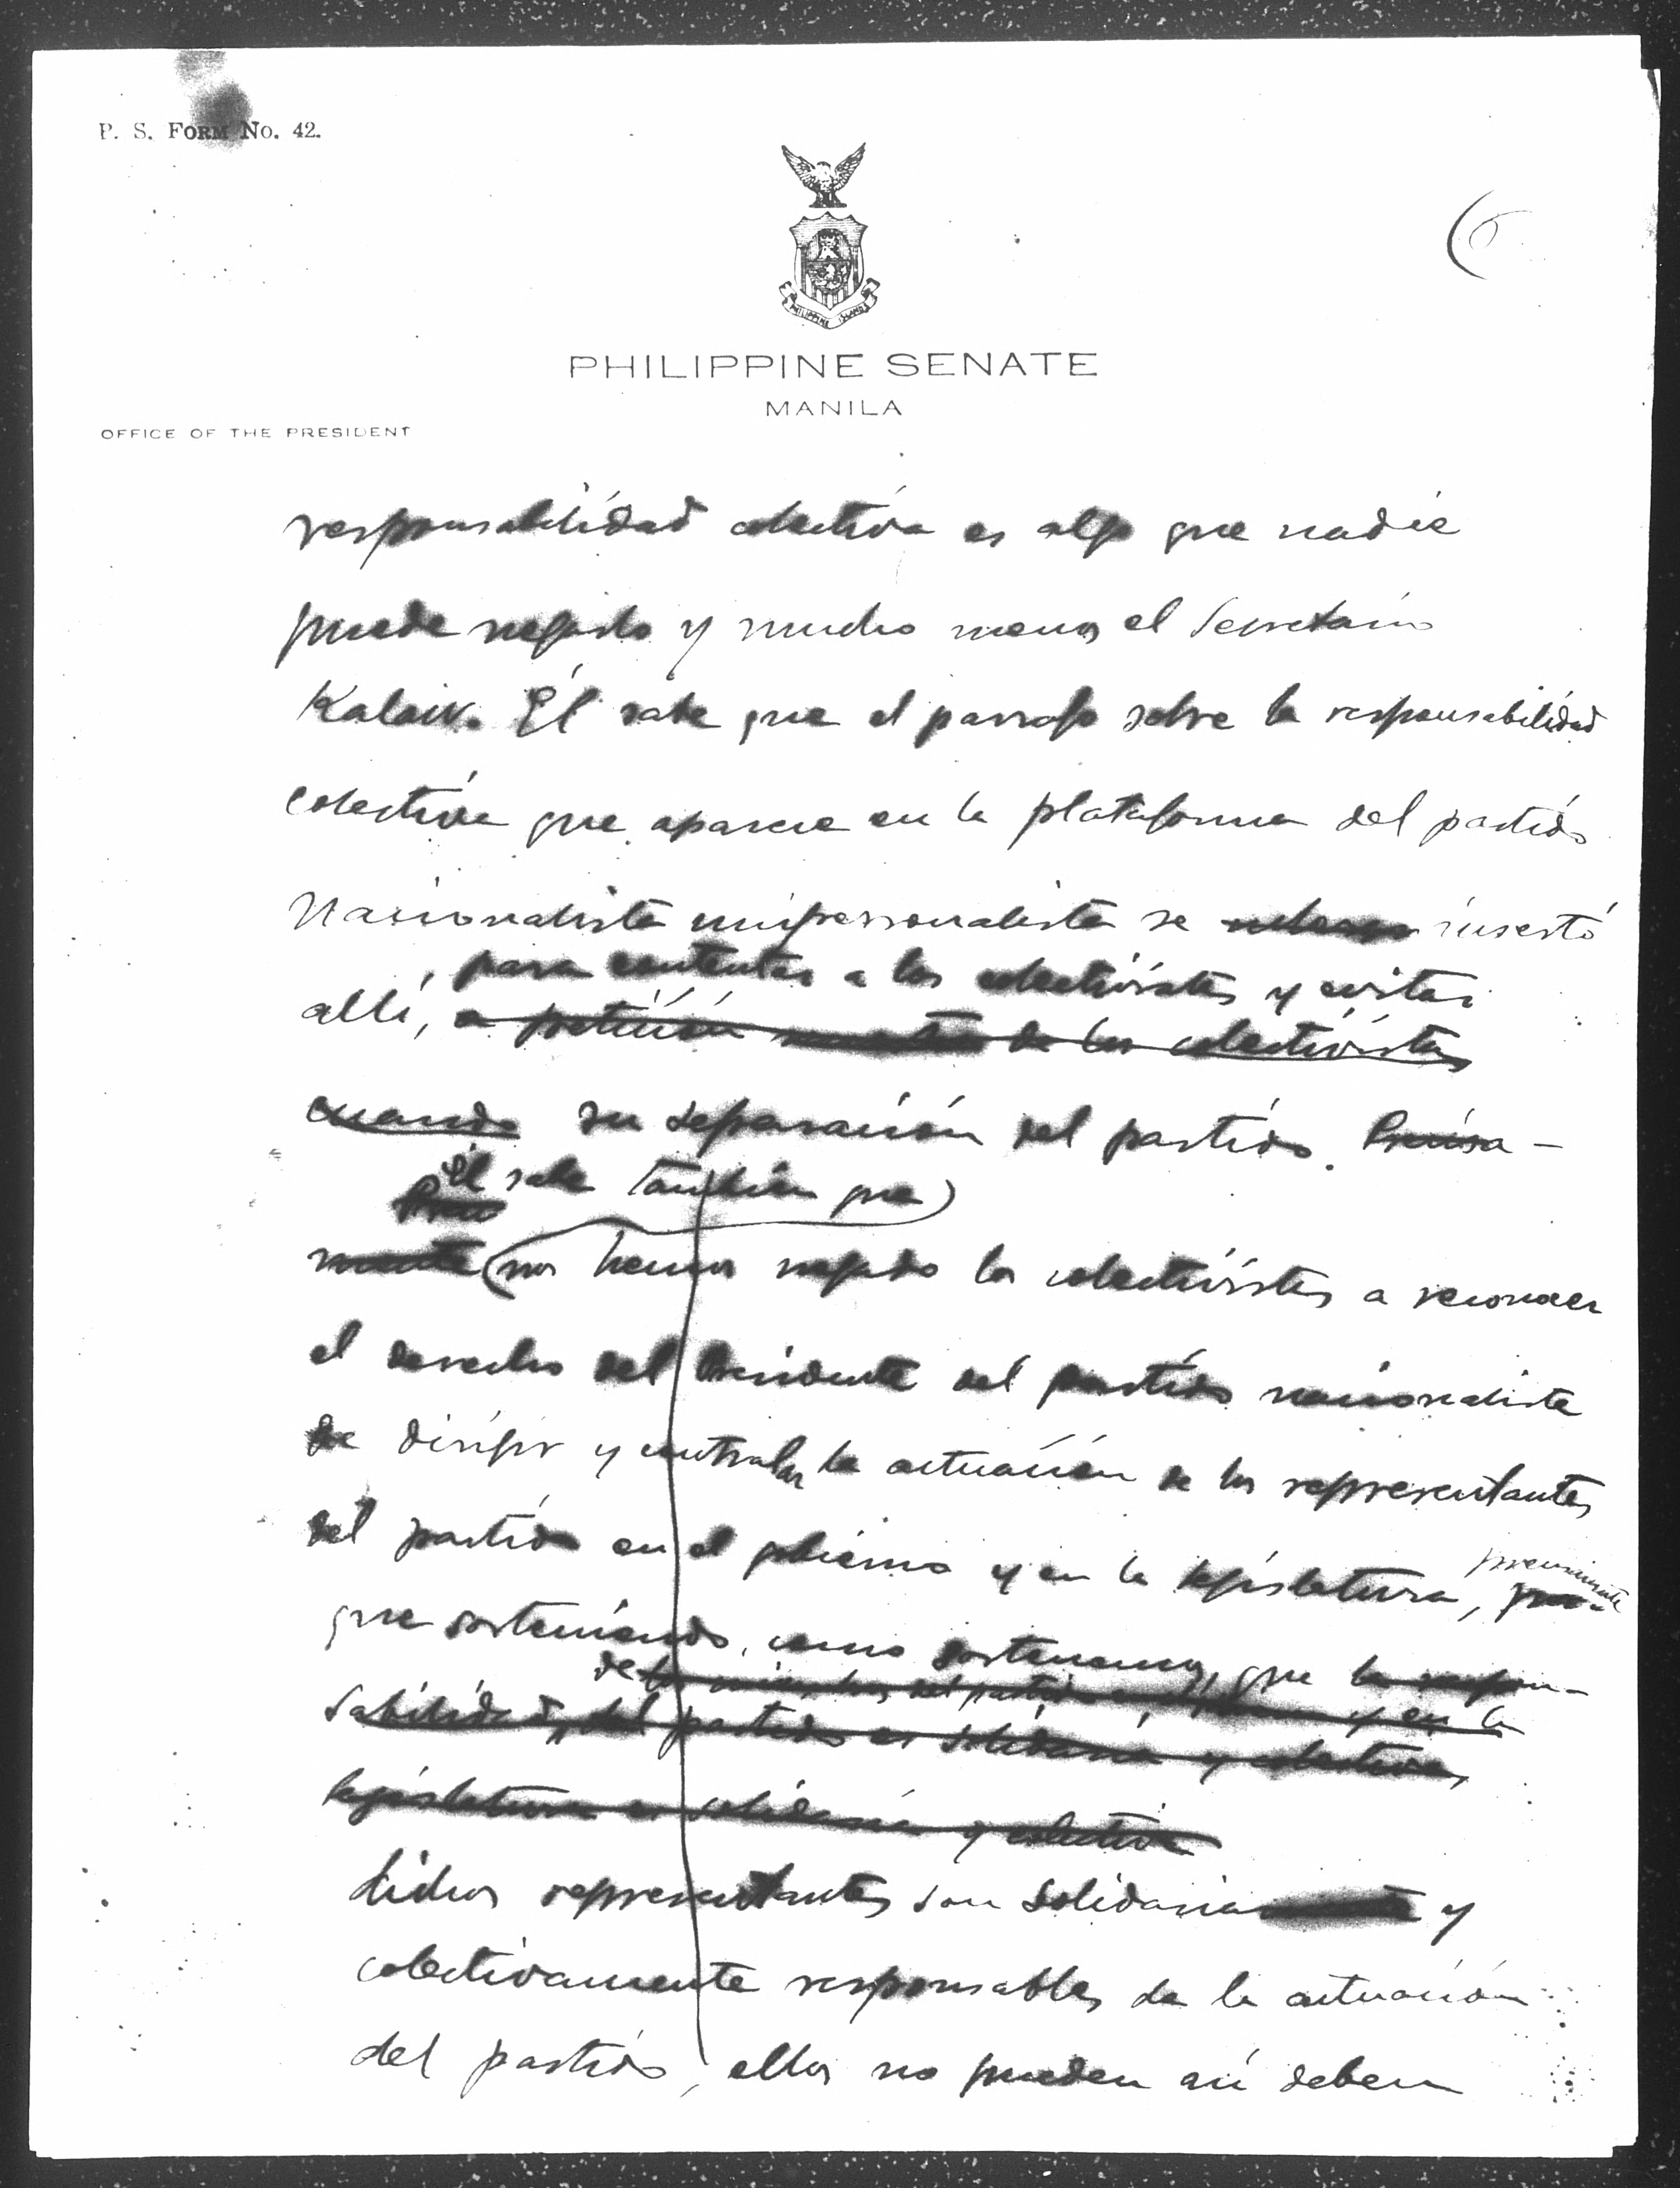 P. S. FORM No. 42.
6
PHILIPPINE ISLANDS
PHILIPPINE SENATE
MANILA
OFFICE OF THE PRESIDENT
responsabilidad colectiva es algo que nadie
puede negarlo y mucho menos el Secretario
Kalaw. Él sabe que el parrafo sobre la responsabilidad
colectiva que aparece en la plataforma del partido
Nacionalista unipersonalista se insertó
, para contentar a los colectivistas y evitar
allí, a petición de los colectivistas
cuando su separación del partido. Precisa-
El sabe también que
mente nos hemos negado los colectivistas a reconocer
el derecho del Presidente del partido nacionalista
de dirigir y controlar la actuación de los representantes
del partido en el gobierno y en la legislatura, precisamente
que sosteniendo, como sostenemos, que la respon-
de los miembros del partido en el gobierno y en la
sabilidad del partido es solidaria y colectiva,
legislatura es solidaria y colectiva
dichos representantes son solidaria y
colectivamente responsables de la actuación
del partido, ellos no pueden ni deben